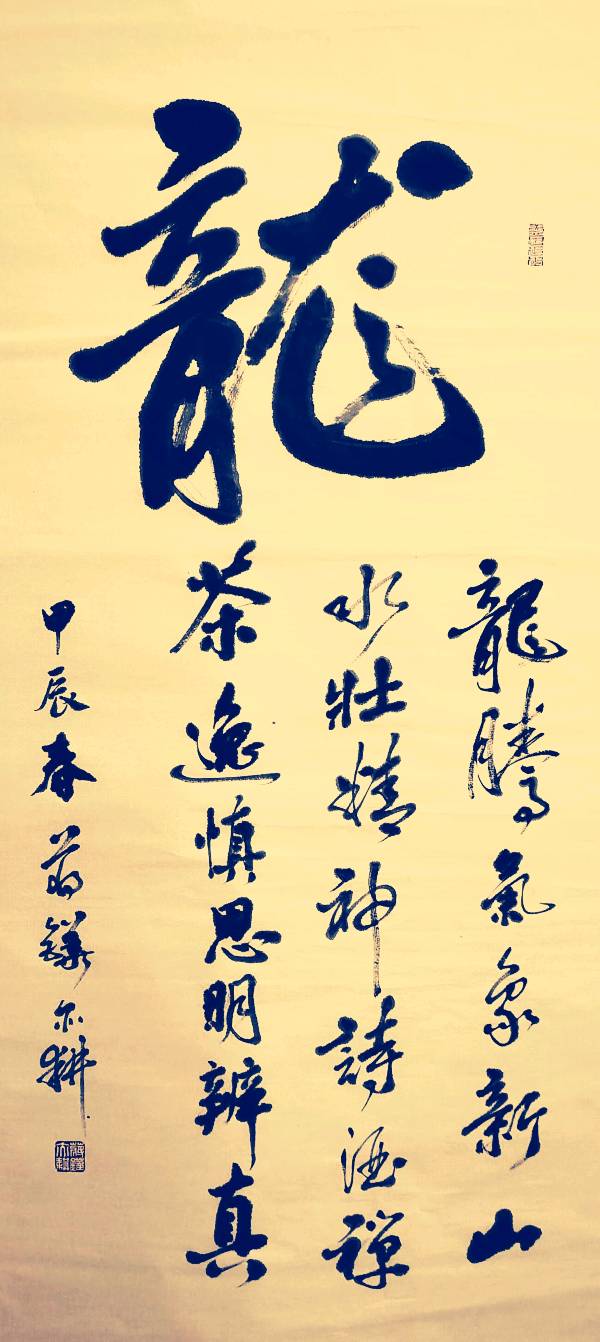 龍
龍騰氣象新山
水壯精神詩酒禪
茶逸慎思明辨真
甲辰春 翁鐵 耕